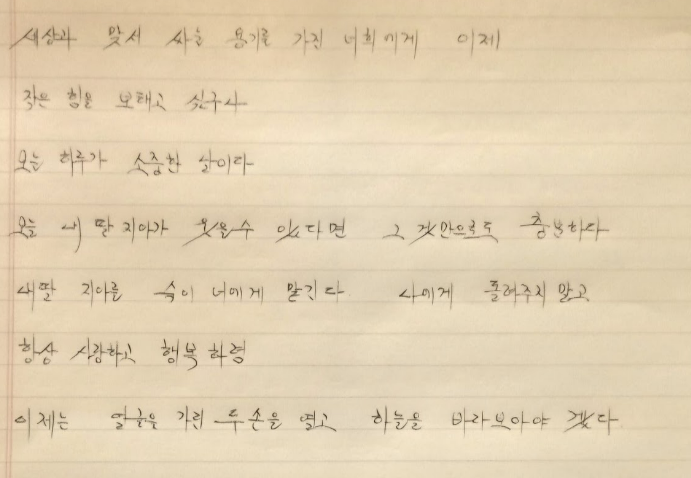 세상과 맞서 싸울 용기를 가진 너희에게 이제
작은 힘을 보태고 싶구나
오늘 하루가 소중한 날이다
오늘 내 딸 지아가 웃을수 있다면 그 것만으로도 충분하다
내딸 지아를 숙이 너에게 맡긴다. 나에게 돌려주지 말고
항상 사랑하고 행복 하렴
이제는 얼굴을 가린 두 손을 열고 하늘을 바라보아야 겠다